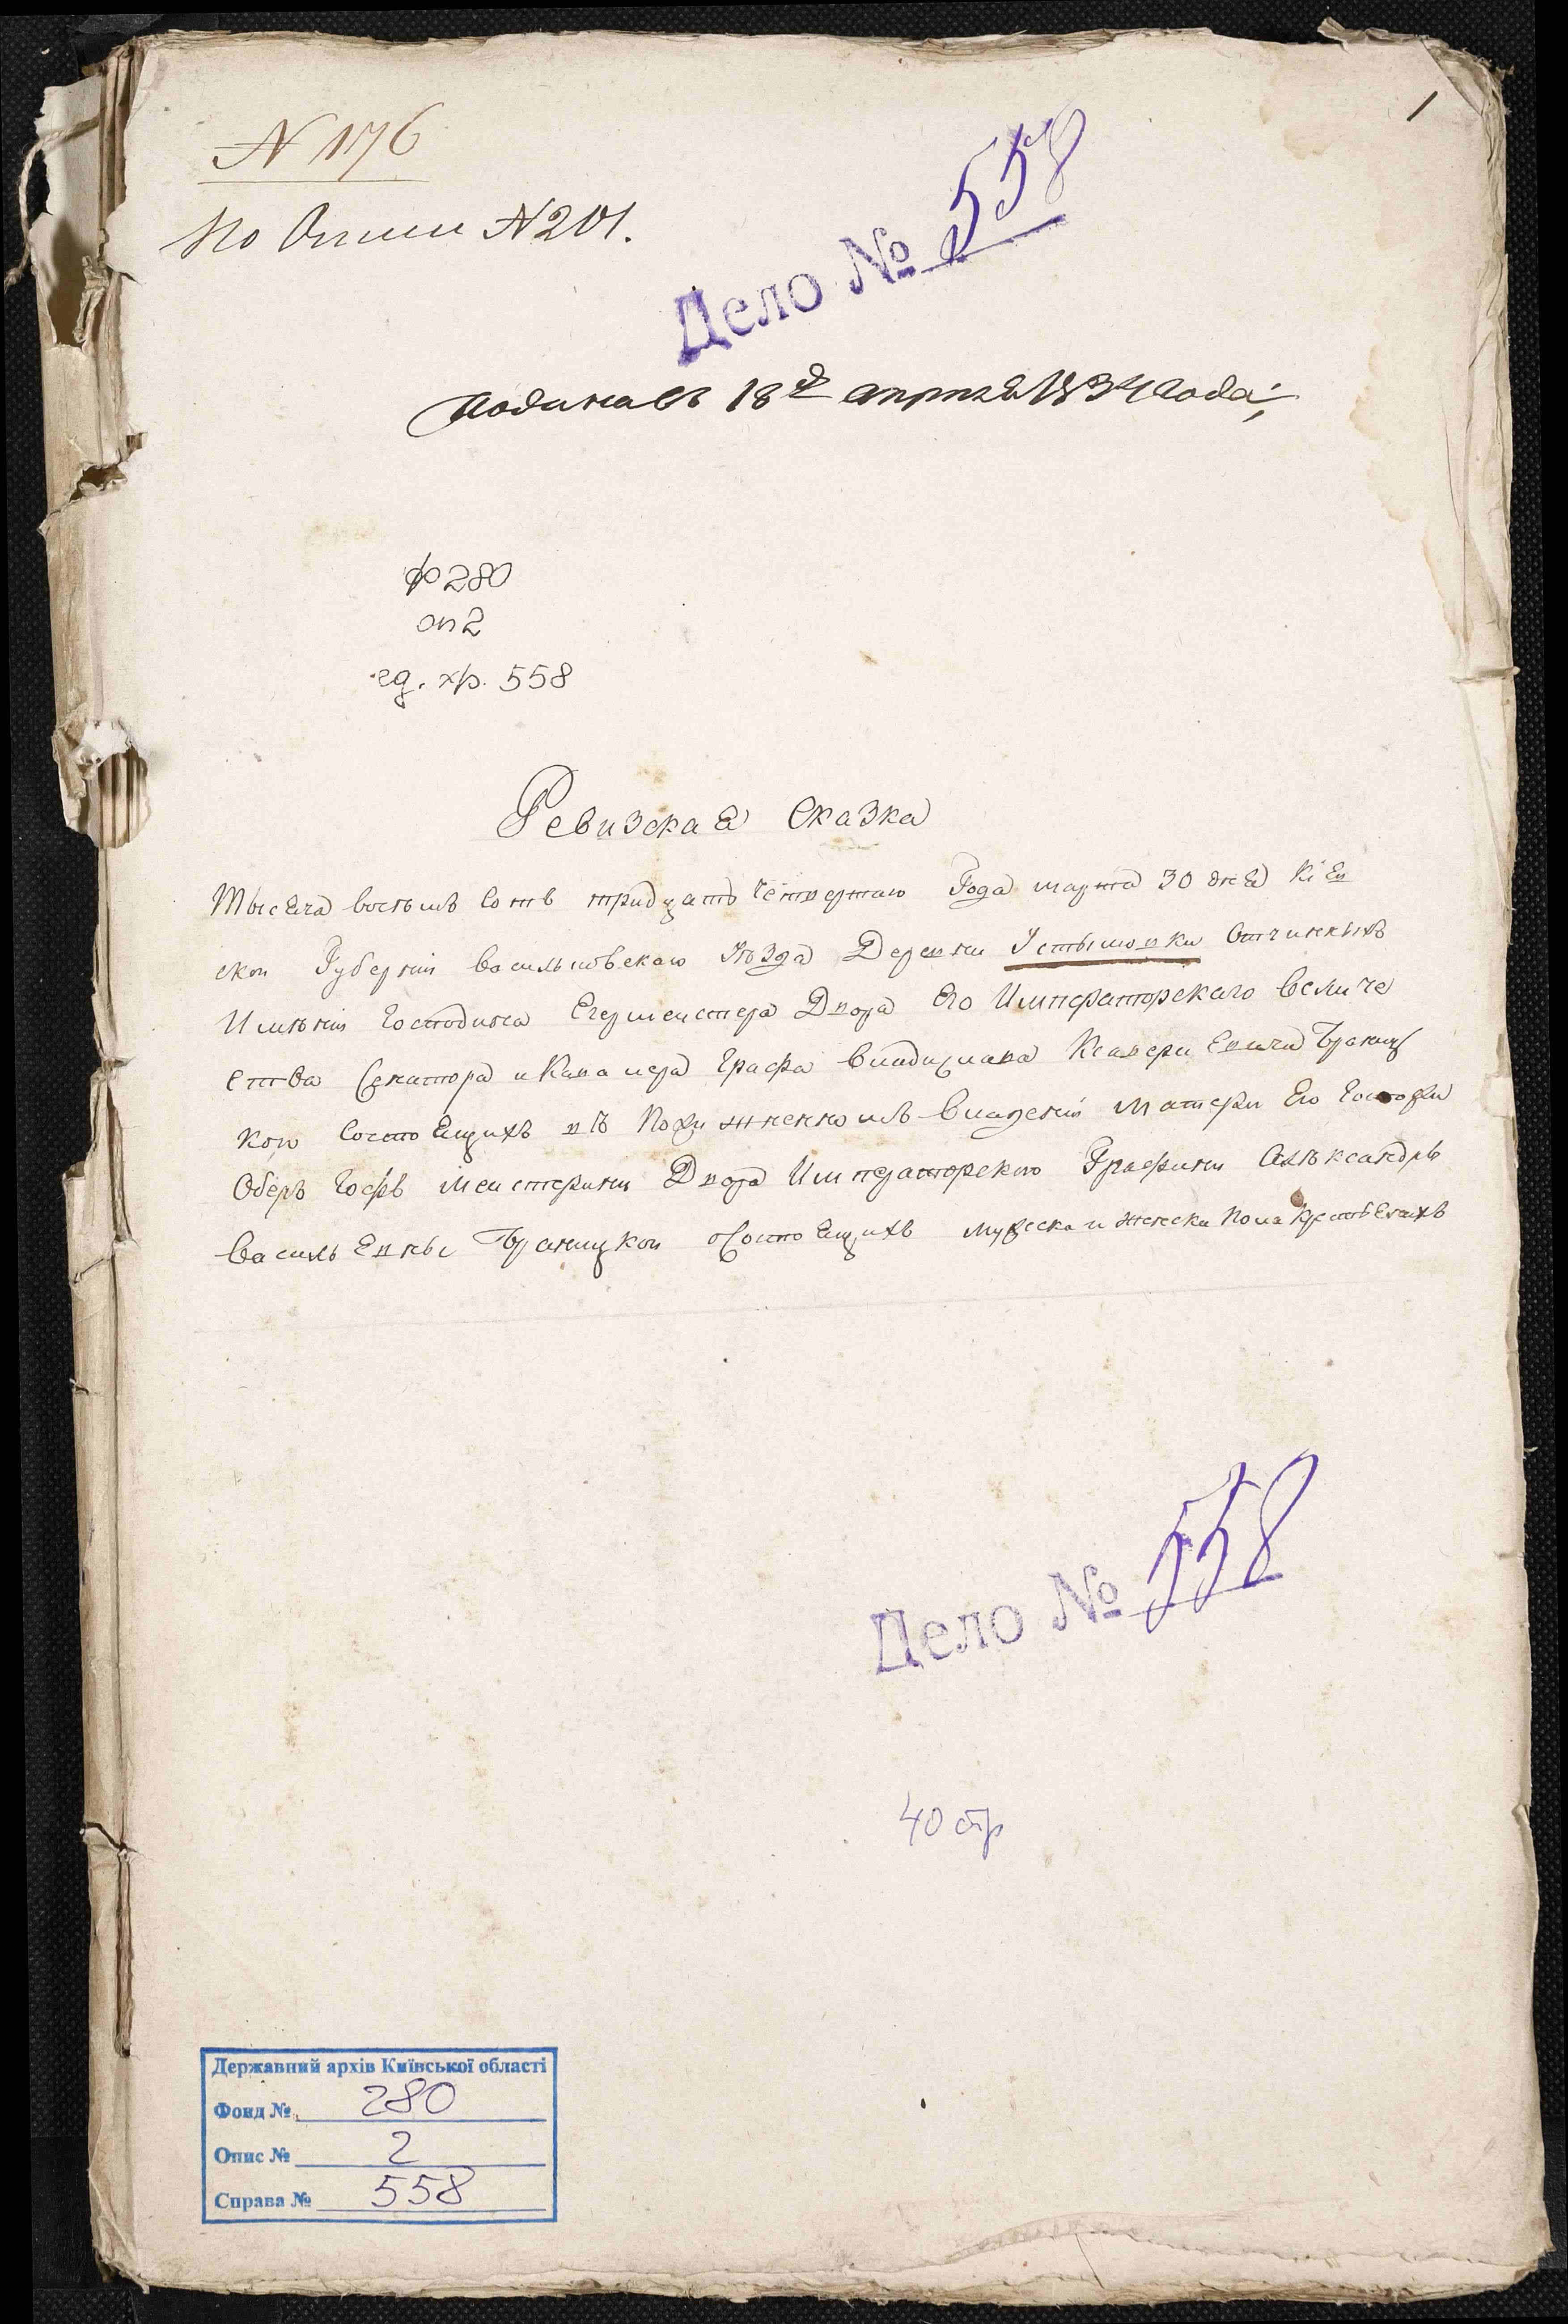 1
N 1176
По Описи N 201.
Дело № 558
подинась 18го апреля 1834 года;
ф 280
оп 2
ед. хр. 558
Ревизская Сказка
Тысяча восъмъ Сотъ тридцать Четвертаго Года марта 30 дня Кіев
скои Губерніи Васильковскаго Уъзда Деревни Устымовки Отчинныхъ
Имъніи Господина Егермеистера Двора Его Императорскаго Величе
ства Сенатора и Кавалера Графа Владислава Ксавери Евича Браниц
кого Состоящихъ въ Пожизненномъ Владеніи Матери Его Госпожи
Оберъ Гофъ Меистерини Двора Императорского Графини Алъксандры
Василь Евны Браницкои о Состоящихъ мужеска и женска Пола Крестьянахъ
Дело № 558
40 стр
Державний архів Київської області
Фонд № 280
Опис № 2
Справа № 558